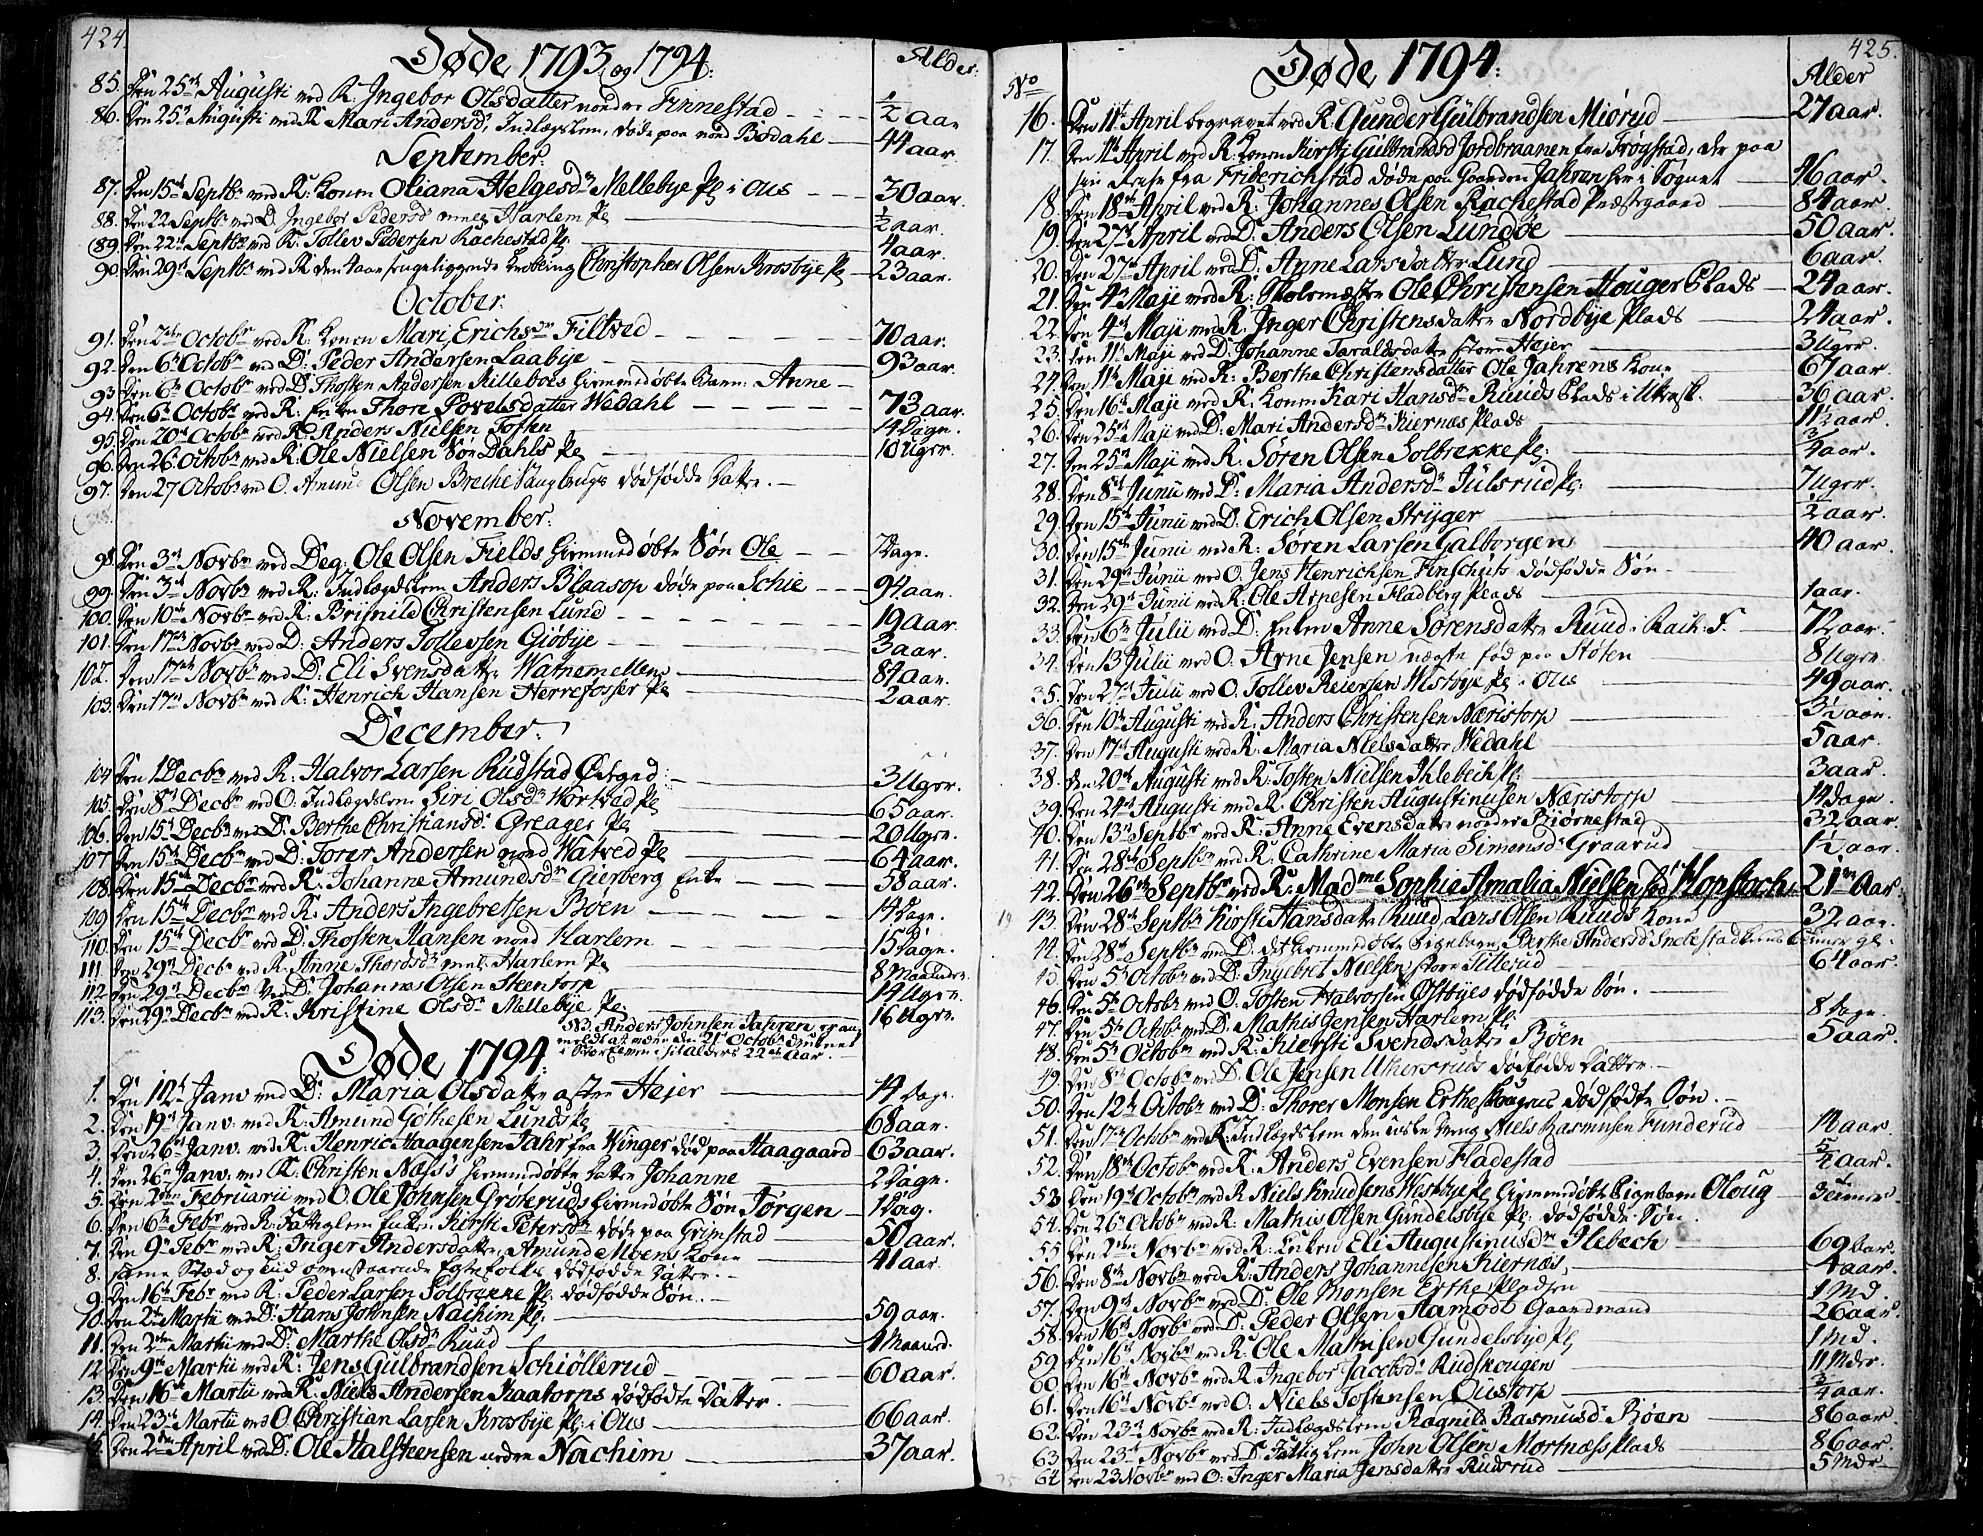 424.
Døde 1793, og 1794:
Alder:
85. Den 25de Augusti ved R: Ingebor Olsdatter nordre Finnestad - - - ½ Aar
86. Den 25de Augusti ved R Mari Andersd: Indlægslem, døde paa nord Bødahl - 44 aar.
September:
87. Den 15de Septbr ved R: Konen Oliana Helgesdr Mellebye Pl i Ous - - 30 aar.
88. Den 22 Septbr ved D. Ingebor Pedersdr Harlem Pl ½ aar.
89. Den 22de Septbr ved R: Tollev Pedersen Rachestad Pl. 4 aar.
90. Den 29de Septbr ved R den 4 aar Christopher Olsen Krosbye Pl - 23 aar.
October:
91. Den 2den Octobr ved R: Konen Mari Erichsdr Filtved - - - - 70 aar.
92. Den 6te Octobr ved D: Peder Andersen Laabye - - - - 93 aar.
93 Den 6te Octobr ved D Thosten Andersen Killebces Hiemmedøbte Barn: Anne -
94. Den 6te Octobr ved R: Enken Thore Povelsdatter Wedahl - - - - 73 aar.
95. Den 20de Octobr ved R: Anders Nielsen Tosten 14 Dage.
96. Den 26 Octobr ved R: Ole Nielsen Søn Dahls Pl 10 Uger.
97. Den 27 Octobr ved O. Amund Olsen Breche Haugbrugs dødfødde Datter. -
November:
98. Den 3de Novbr ved Deg: Ole Olsen Fields Hiemmedøbte Søn Ole - - 7 Dage.
99. Den 3de Novbr ved R: Indlægslem Anders Blaasop døde paa Schie - - - 94 aar.
100. Den 10de Novbr ved R: Brisnild Christensen Lund - - - - 19 aar.
101. Den 17de Novbr ved D: Anders Tollevsen Giøbye - - - - 3 aar.
102. Den 17de Novbr ved D: Eli Svensdatter Watnemellem - - - 84 aar.
103. Den 17de Novbr ved R: Henrich Hansen Herrefosser Pl - - 2 aar.
December:
104 Den 1 Decbr ved R: Halvor Larsen Rudstad Østgrd: 3 Uger.
105. Den 8de Decbr ved O. Indlægslem Siri Olsdr Wortved Pl 65 aar.
106. Den 15de Decbr ved D: Berthe Christiansdr Greager Pl 20 Uger.
107 Den 15de Decbr ved D: Torer Andersen nord Watved Pl 64 aar.
108. Den 15de Decbr ved R: Johanne Amundsdr Gierberg Enke - - - 58 aar.
109 Den 15de Decbr ved R: Anders Ingebretsen Bøen - - - 14 Dage.
110. Den 15de Decbr ved D: Thosten Hansen nord Harlem - - - 15 Dage.
111. Den 29de Decbr ved R: Anne Thordsdr Harlem Pl 8 Maaneder.
112 Den 29de Decbr ved D: Johannes Olsen Steentorp 14 Uger.
113. Den 29de Decbr ved R: Kristine Olsdr Mellebye Pl 16 Uger.
NB. Anders Johnsen Jahren er an
meldt at være den 21 Octobr druknet
i Store Elven i sit alders 22de Aar.
Døde 1794:
1. Den 12de Janv ved D: Maria Olsdatter østre Høier 14 Dage.
2. Den 19de Janv. ved R: Amund Gøthesen Lunds Pl 68 aar.
3. Den 26de Janv. ved R: Henric Haagensen Jahr fra Winger død paa Haagaard - 63 aar.
4. Den 26de Janv. ved R. Christen Næss's Hiemmedøbte Datter Johanne 2 Dage.
5. Den 2den Februarii ved O. Ole Johnsen Grøteruds Hiemmedøbte Søn Jørgen - 1 Dag.
6. Den 6te Febr ved R: Fattiglem Enken Kirsti Petersdr døde paa Grimstad 50 aar.
7. Den 9de Febr ved R: Inger Andersdatter, Amund Moens Kone 41 aar.
8. samme Stæd og tiid ovenstaaende Egtefolks dødfødde Datter. -
9. Den 16de Febr ved R. Peder Larsen Solbrekke Pl. dødfødde Søn. -
10. Den 2den Martii ved D: Hans Johnsen Nachim Pl: 59 aar.
11. Den 2den Martii ved D: Marthe Olsdr Ruud 1 Maaned.
12 Den 9de Martii ved R: Jens Gulbrandsen Schiøllerud - - - 60 aar.
13. Den 16de Martii ved R. Niels Andersen Kaatorps dødfødte Datter.
14. Den 23de Martii ved O. Christian Larsen Krosbye Pl: i Ous 66 aar.
15. Den 2den April ved D: Ole Halsteensen nedre Nachim 37 aar.
425.
Døde 1794:
No Alder
16. Den 11te April begravet ved R. Gunder Gulbrandsen Miørud 27 aar.
17. Den 11te April ved R: Konen Kirsti Gulbrandsd Jordbraanen fra Trøgstad, der paa
sin Reise fra Friderichstad døde paa Gaarden Jahren her i Sognet 46 aar.
18. Den 18de April ved R: Johannes Olsen Rachestad Præstegaard 84 aar.
19. Den 27de April ved D. Anders Olsen Lundøe 50 aar.
20. Den 27de April ved D: Anne Larsdatter Lund 6 aar.
21. Den 4de Maji ved R: Skolemæster Ole Christensen Houger Plads - 24 aar.
22. Den 4de Maji ved R. Inger Christensdatter Nordbye Plads 24 aar.
23. Den 11te Maji ved D: Johanne Taraldsdatter store Høier 3 Uger.
24. Den 11te Maji ved R: Berthe Christensdatter Ole Jahrens Kone 67 aar.
25. Den 16de Maji ved R. Konen Kari Hansdr Ruuds Plads i Utkast. 36 aar.
26. Den 25de Maji ved D: Mari Andersdr Kiernæs Plads 1½ aar.
27. Den 25de Maji ved R: Søren Olsen Solbrekke Pl: ¾ aar.
28. Den 8de Junii ved D: Maria Andersdr Julsrud Pl: 7 Uger.
29. Den 15de Junii ved D: Erich Olsen Stryger ½ aar.
30. Den 15de Junii ved R: Søren Larsen Galborgen 40 aar.
31. Den 29de Junii ved O. Jens Henrichsen Finschuts dødfødde Søn -
32. Den 29de Junii ved R: Ole Arnesen Fladberg Plads 1 aar.
33. Den 6te Julii ved D: Enken Anne Sørensdatter Ruud i Rach: F. 72 aar.
34. Den 13 Julii ved O. Arne Jensen uægte fød paa Støten 8 Uger.
35. Den 27de Julii ved O. Tollev Reiersen Westbye Pl i Ous 49 aar.
36. Den 10de Augusti ved R: Anders Christensen Næristorp 3½ aar.
37. Den 17de Augusti ved R: Maria Nielsdatter Wedahl 5 aar.
38. Den 20de Augusti ved R: Tosten Nielsen Ihlebech Pl: 3 aar.
39. Den 24de Augusti ved R: Christen Augustinusen Næristorp 14 Dage.
40. Den 13de Septbr ved R: Anne Evensdatter nordre Biørnestad 32 aar.
41. Den 28de Septbr ved R: Cathrine Maria Simonsdr Graarud 1½ aar.
42. Den 26de Septbr ved R: Madme Sophie Amalia Nielsen fød Hopstock 21 Aar
43. Den 28de Septbr Kirsti Hansdatter Ruud, Lars Olsen Ruuds Kone 32 aar.
44. Den 28de Septbr ved D. det Hiemmedøbte Pigebarn, Berthe Andersdr timer gl.
45. Den 5te Octobr ved D: Ingebret Nielsen store Tillerud 64 aar.
46. Den 5te Octobr ved O. Tosten Halvorsen Østbyes dødfødde Søn. -
47. Den 5te Octobr ved D: Mathis Jensen Harlem Pl: 8 Dage.
48. Den 5te Octobr ved R: Kiersti Svendsdatter Bøen 5 aar.
49. Den 8de Octobr ved D. Ole Jensen Uthersruds dødfødde Datter -
50. Den 12te Octobr ved D: Thorer Monsen Ertheskougnes dødfødte Søn. -
51. Den 17de Octobr ved R: Indlægslem den Niels Rasmusen Funderud 14 aar.
52. Den 18de Octobr ved R: Anders Evensen Fladestad 5/4 aar.
53 Den 19de Octobr ved R Niels Knudsens Westbye Pl Hiemmedøbte Pigebarn Oloug 3 timer
54. Den 26de Octobr ved R: Mathis Olsen Gundelsbye Pl: dødfødde Søn.
55 Den 2den Novbr ved R: Enken Eli Augustinusdr Ilebech 69 aar.
56. Den 8de Novbr ved R: Anders Johannesen Kiernæs, 4 aar.
57. Den 9de Novbr ved D: Ole Monsen Erthe Pladsen 1 Md.
58. Den 16de Novbr ved D: Peder Olsen Hamodt Gaardmand 26 aar.
59. Den 16de Novbr ved R: Ole Mathisen Gundelsbye Pl 1 Md.
60. Den 16de Novbr ved R: Ingebor Jacobsdr Rudskougen 11 Mder.
61. Den 16de Novbr ved O. Niels Tostensen Oustorp ¾ aar.
62. Den 23de Novbr ved R: Indlægslem Ragnild Rasmusdr Bøen 86 aar.
63. Den 23de Novbr ved D: Fattiglem John Olsen Mortnæss Plads 86 aar.
64 Den 23 Novbr ved O: Inger Maria Jensdatter Rudsrud 5 Mdr